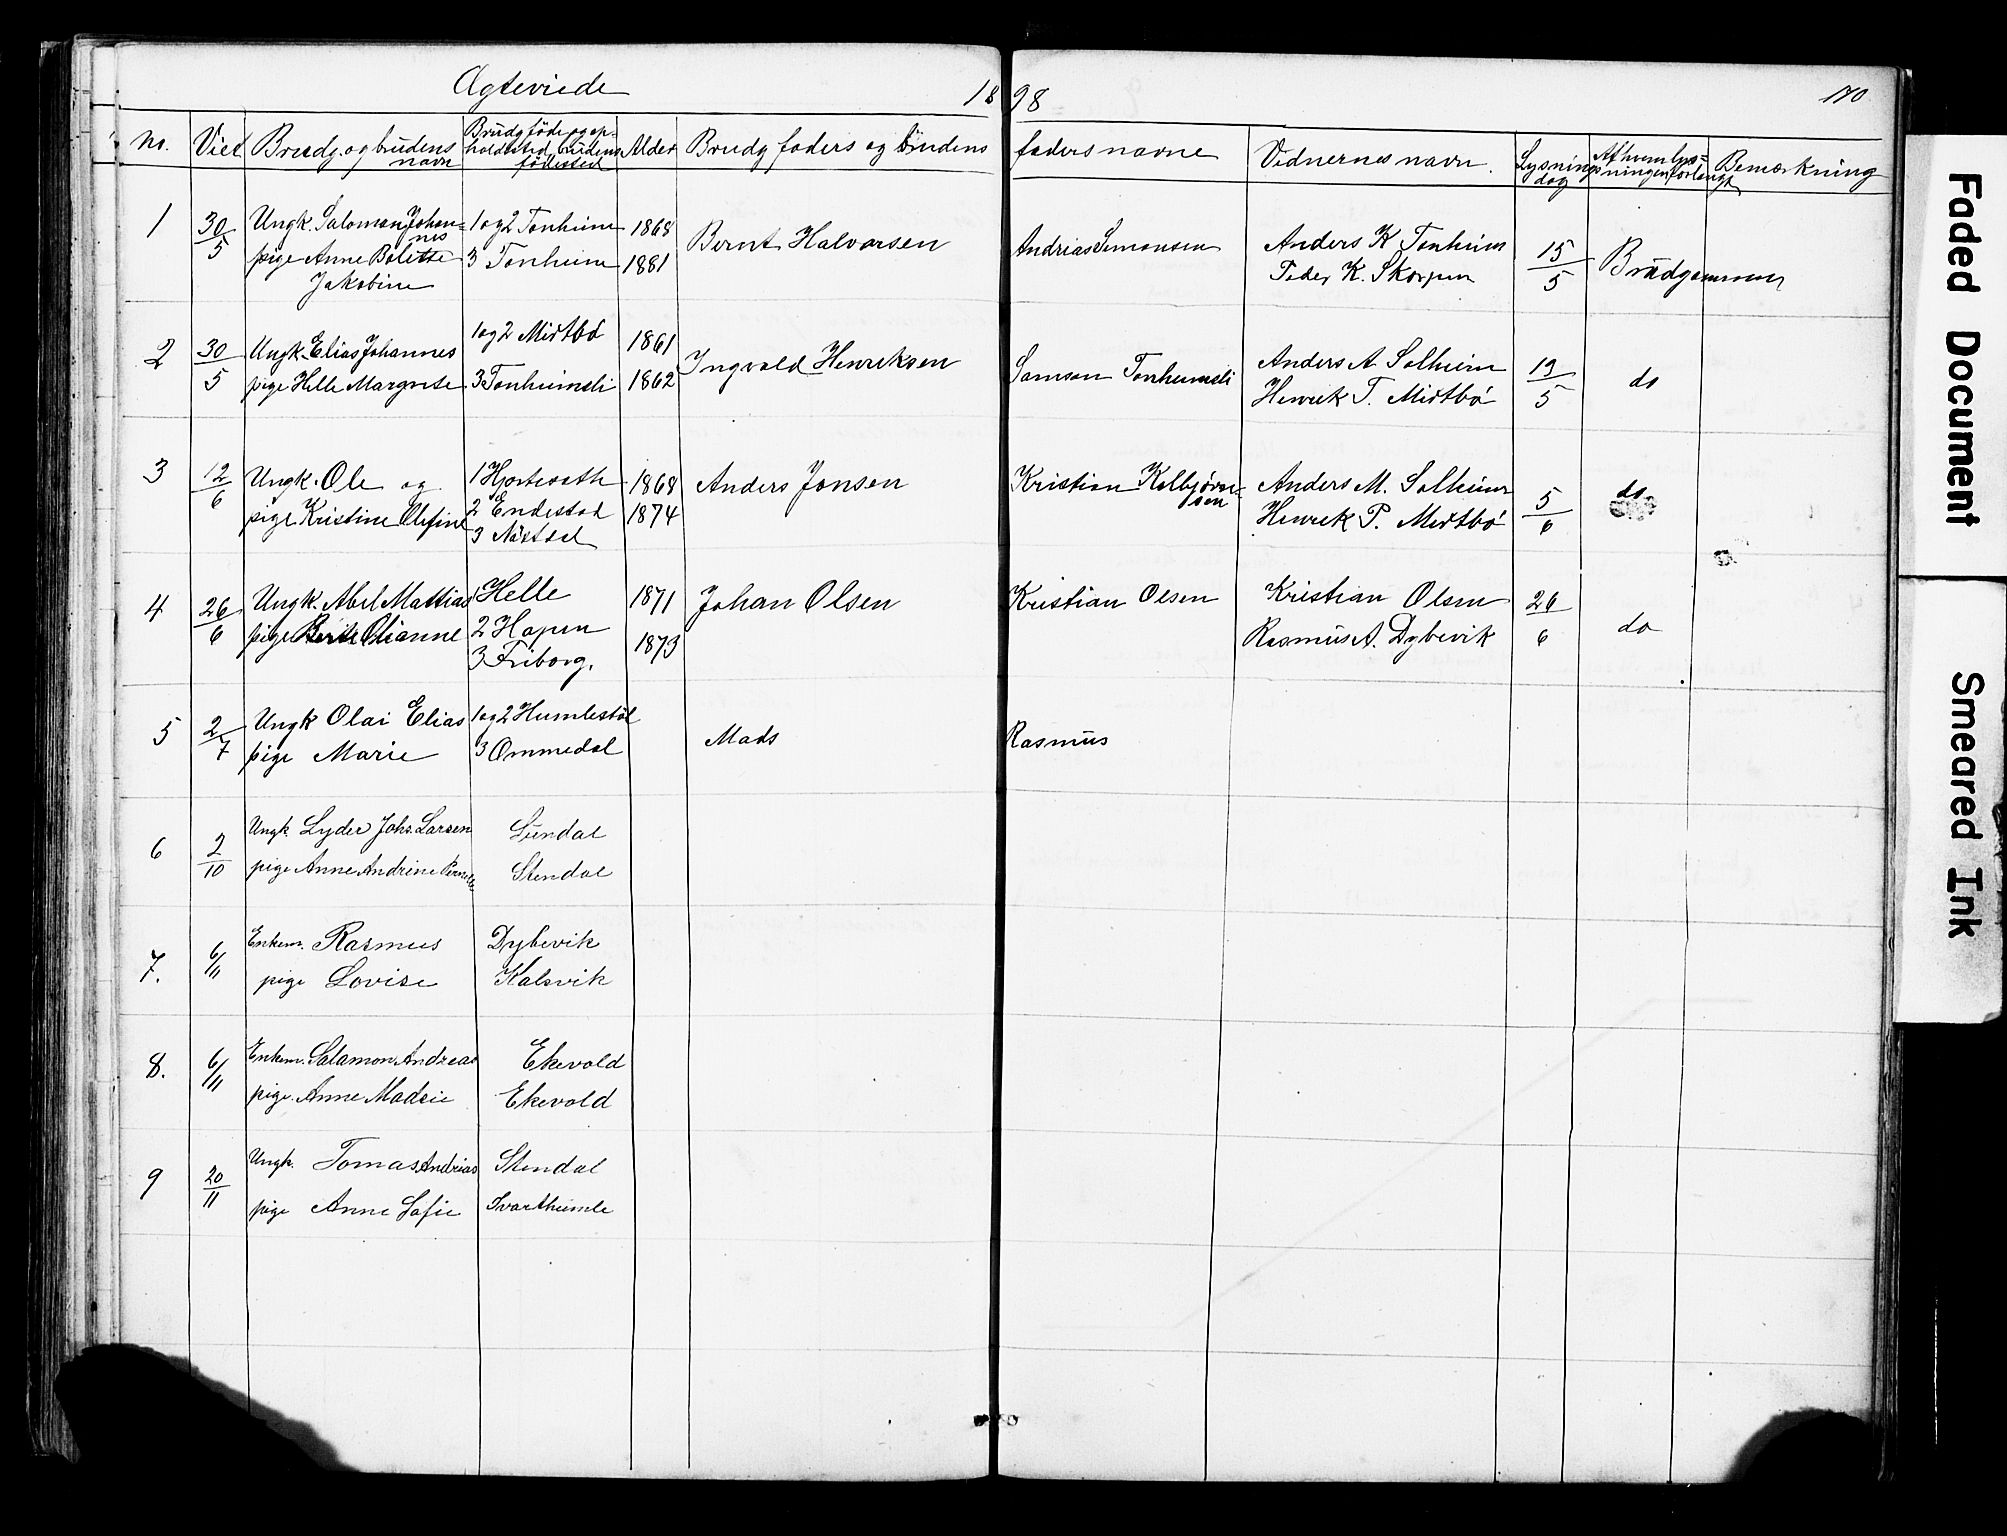 Ægteviede 1898 170
No. Viet Brudg. og brudens navn Brudg føde og opholdssted, brudens fødested Alder Brudg faders og brudens faders navne Vidnernes navn. Lysningsdag Af hvem lysningen forlangt Bemærkning
1 30/5 Ungk. Salomon Johannes 1 og 2 Tonheim 1868 Bernt Halvorsen Andrias Simonsen Anders K Tonheim 15/5 Brudgommen
pige Anne Bolette Jakobine 3 Tonheim 1881 Peder K. Skorpen
2 30/5 Ungk. Elias Johannes 1 og 2 Midtbö 1861 Ingvald Henriksen Samson Tonheimsli Anders A Solheim 19/5 do
pige Helle Margrete 3 Tonheimsli 1862 Henrik T. Midtbö
3 12/6 Ungk. Ole og 1 Hjorteseth 1868 Anders Jonsen Kristian Kolbjørnsen Anders M. Solheim 5/6 do
pige Kristine Olefine 2 Endestad 1874 Henrik P. Midtbö
3 Nästdal
4 26/6 Ungk. Abel Mattias 1 Helle 1871 Johan Olsen Kristian Olsen Kristian Olsen 26/6 do
pige Berte Olianne 2 Hopen 1873 Rasmus A. Dybevik
3 Friborg.
5 2/7 Ungk Olai Elias 1 og 2 Humlestöl Mads Rasmus
pige Marie 3 Ommedal
6 2/10 Ungk. Lyder Johs. Larsen Sundal
pige Anne Andrine Pernelle Stendal
7. 6/11 Enkem. Rasmus Dybevik
pige Lovise Kalsvik
8. 6/11 Enkem. Salamon Andreas Ekevold
pige. Anne Madsie Ekevold
9 20/11 Ungk. Tomas Andrias Stendal
pige Anne Sofie Svarthumle
Faded Document
Smeared Ink